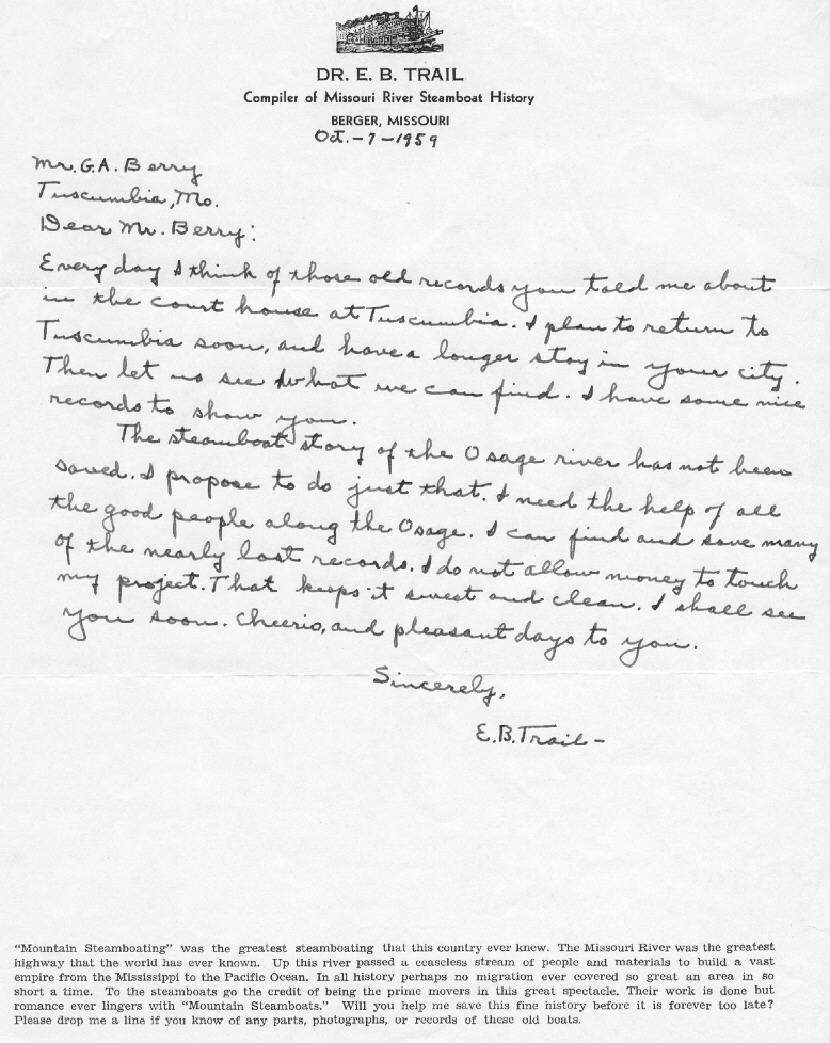 DR. E. B. TRAIL
Compiler of Missouri River Steamboat History
BERGER, MISSOURI
Oct.-7-1959
Mr. G.A. Berry
Tuscumbia, Mo.
Dear Mr. Berry:
Every day I think of those old records you told me about
in the court house at Tuscumbia. I plan to return to
Tuscumbia soon, and have a longer stay in your city.
Then let us see what we can find. I have some nice
records to show you.
The steamboat story of the Osage river has not been
saved. I propose to do just that. I need the help of all
the good people along the Osage. I can find and save many
of the nearly lost records. I do not allow money to touch
my project. That keeps it sweet and clean. I shall see
you soon. Cheerio, and pleasant days to you.
Sincerely,
E.B. Trail-
"Mountain Steamboating" was the greatest steamboating that this country ever knew. The Missouri River was the greatest
highway that the world has ever known. Up this river passed a ceaseless stream of people and materials to build a vast
empire from the Mississippi to the Pacific Ocean. In all history perhaps no migration ever covered so great an area in so
short a time. To the steamboats go the credit of being the prime movers in this great spectacle. Their work is done but
romance ever lingers with "Mountain Steamboats." Will you help me save this fine history before it is forever too late?
Please drop me a line if you know of any parts, photographs, or records of these old boats.